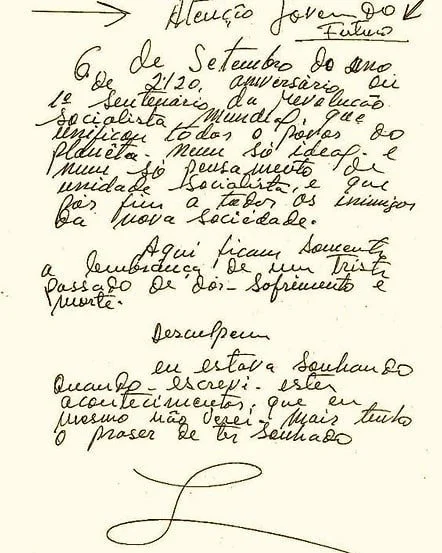 Atenção Jovem do
Futuro
6 de Setembro do ano
de 2120, aniversário ou
1º sentenário da revolução
socialista mundial, que
unificou todos o povos do
planeta. num só ideal e
num só pensamento de
unidade socialista, e que
pos fim a todos os inimigos
da nova sociedade.
Aqui ficam somente
a lembrança de um triste
passado de dôr-sofrimento e
morte.
Desculpem
eu estava sonhando
quando-escrevi-estes
acontecimentos, que eu
mesmo não verei. Mais tenho
o praser de ter sonhado